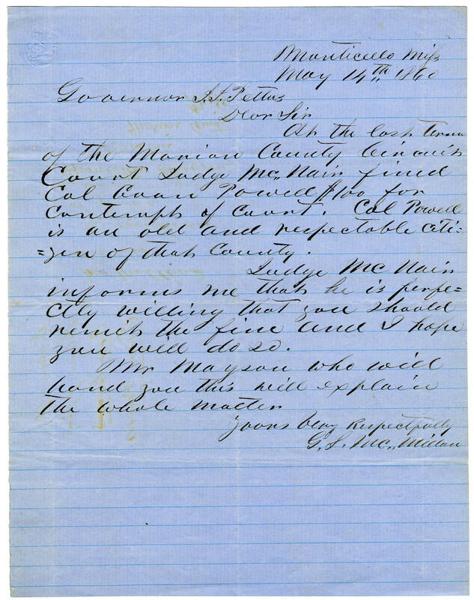 Monticello Miss
May 14th 1860
Governor J.J. Pettus
Dear Sir
At the last term
of the Marion County Circuit
Court Judge McNair fined
Col Powell $100 for
Contempt of Court. Col Powell
is an old and respectable citi-
=zen of that County.
Judge McNair
informs me that he is perfe-
ctly willing that you should
remit the fine and I hope
you will do so.
Mr Mayson who will
hand you this will explain
the whole matter
Yours very Respectfully
McMillan